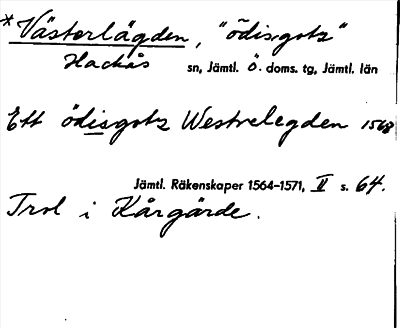 *Västerlägden, "ödisgotz"
Hackås sn, Jämtl. Ö. doms. tg, Jämtl. län
Ett ödisgotz Westrelegden 1568
Jämtl. Räkenskaper 1564-1571, II s. 64.
Trol i Kårgärde.